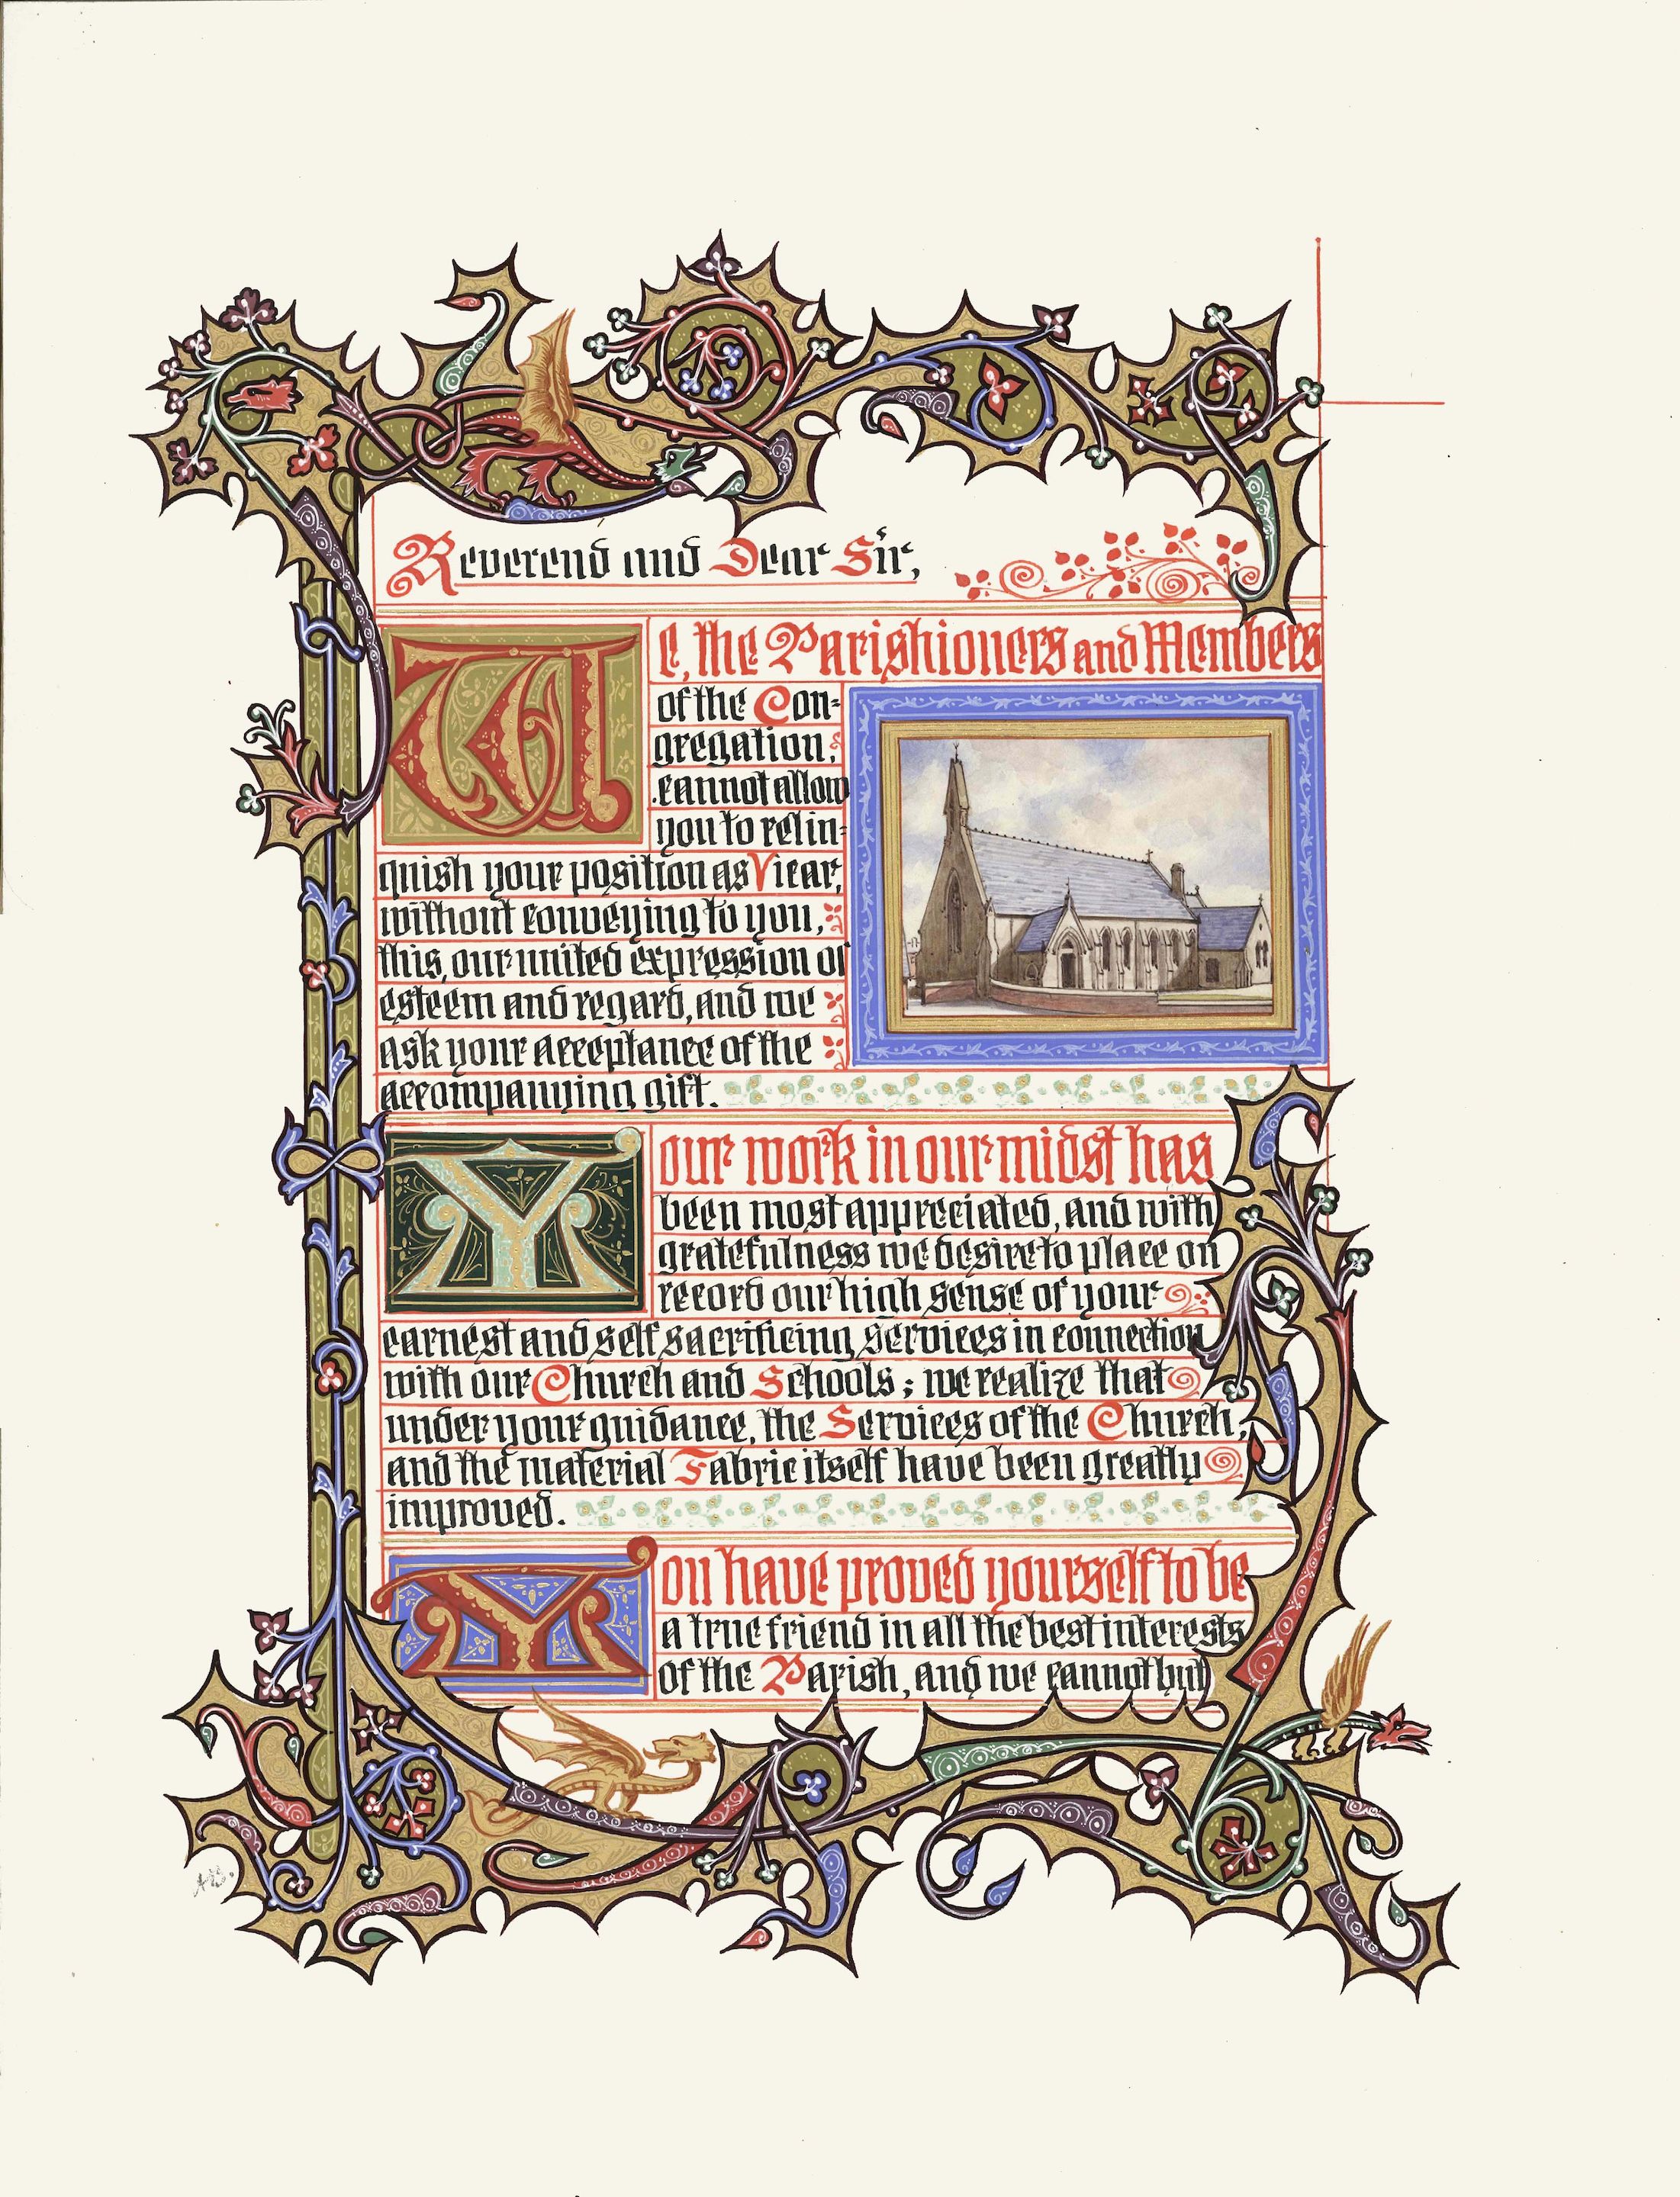 Reverend and Dear Sir,
We, the Parishioners and Members
of the Con-
gregation,
cannot allow
you to relin-
quish your position as Vicar,
without conveying to you,
this, our united expression of
esteem and regard, and we
ask your acceptance of the
accompanying gift.
Your work in our midst has
been most appreciated, and with
gratefulness we desire to place on
record our high sense of your
earnest and self sacrificing services in connection
with our Church and Schools; we realize that
under your guidance, the Services of the Church,
and the material Fabric itself have been greatly
improved.
You have proved yourself to be
a true friend in all the best interests
of the Parish, and we cannot but